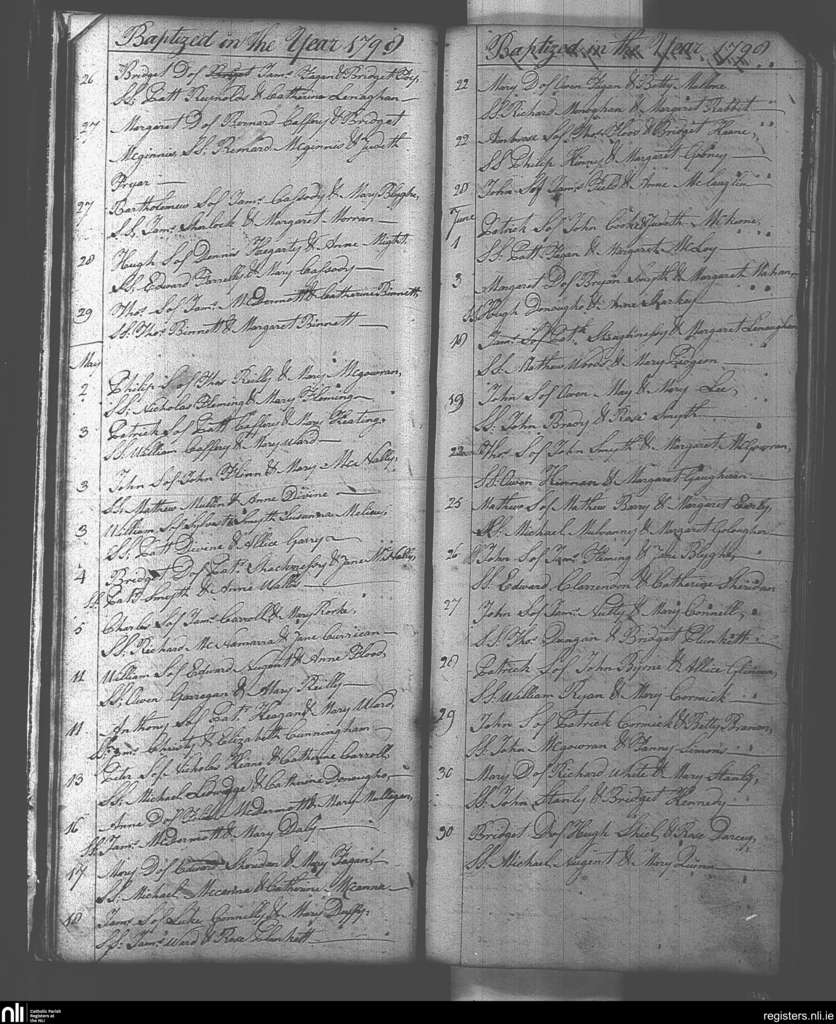 Baptized in the Year 1798
26 Bridget D of Jams Fagan & Bridget Fay,
Ss. Patt Reynolds & Catherine Lenaghan
27 Margaret D of Bernard Caffery & Bridget
Mcginnis, Ss. Bernard Mcginnis & Judeth
Pryar
27 Bartholomew S of Jams Cassody & Mary Blyghe,
Ss. Jams Sherlock & Margaret Horran
28 Hugh S of Dennis Hegarty & Anne Might.
Ss. Edward Ferrell & Mary Cassody
29 Thos S of Jams McDermott & Catherine Binnett,
Ss. Thos Binnett & Margaret Binnett
May
2 Philip S of Thos Reilly & Mary Mcgowran,
Ss. Nicholas Fleming & Mary Fleming
3 Patrick S of Patt Caffery & Mary Keating,
Ss. William Caffery & Mary Ward
3 John S of John Flinn & Mary McNally,
Ss. Mathew Mullin & Anne Divine
3 William S of Sylvester Smyth Susanna
Ss. Patt Devine & Allice Garry
4 Bridget D of Patt Shachnessy & Jane McNally,
Ss. Patt Smyth & Anne Walls
5 Charles S of Jams Carroll & Mary Rorke,
Ss. Richard McNamarra & Jane Currican
11 William S of Edward Nugent & Anne Flood
Ss. Owen Garregan & Mary Reilly
11 Anthony S of Patt Heagan & Mary Ward,
Ss. Christy & Elizabeth Cunningham
13 Peter S of Nicholas Keane & Catherine Carroll,
Ss. Michael Ledwidge & Cathrine Donougho,
16 Anne D of McDermott & Mary Mulligan,
Ss. Jams McDermott & Mary Daly
17 Mary D of Edward Sheridan & Mary Fagan
Ss. Michael Mccanna & Catherine Mcanna
18 Jams S of Luke Connelly & Mary Duffy,
Ss. Jams Ward & Rose Plunkett
Baptized in the Year 1798
22 Mary D of Owen Fagan & Betty Mallone
Ss. Richard Monaghan & Margaret Rabbit
22 Ambrose S of Thos Flood & Bridget Keane,
Ss. Philip Kenny & Margaret
28 John S of Jams Field & Anne Mclaughlin
June
1 Patrick S of John Cooke & Judeth McKune,
Ss. Patt Fagan & Margaret McLoy
3 Margaret D of Bryan Smyth & Margaret Mahan,
Ss. Hugh Donougho & Anne Sharkey
10 Jams S of Patk Shaughnessy & Margaret Lenaghan
Ss. Mathew Woods & Mary Pidgeon
19 John S of Owen May & Mary Lee,
Ss. John Brady & Rose Smyth
22 Thos S of John Smyth & Margaret McGowran,
Ss. Owen Kiernan & Margaret Gaughran
25 Mathew S of Mathew Barry & Margaret
Ss. Michael Mulvanny & Margaret Gologher
26 John S of Jams Fleming & Blyghe,
Ss. Edward Clarendon & Catherine Sheridan
27 John S of Jams Nulty & Mary Connell,
Ss. Thos Dungan & Bridget Plunkett
28 Patrick S of John Byrne & Allice
Ss. William Ryan & Mary Cormick
29 John S of Patrick Cormick & Betty Brennan,
Ss. John Mcgowran & Fanny Simons
30 Mary D of Richard White & Mary Stanly,
Ss. John Stanly & Bridget Kennedy
30 Bridget D of Hugh Shiel & Rose Darcey,
Ss. Michael Nugent & Mary Quinn
nli
Catholic Parish
Registers at
the NLI
registers.nli.ie